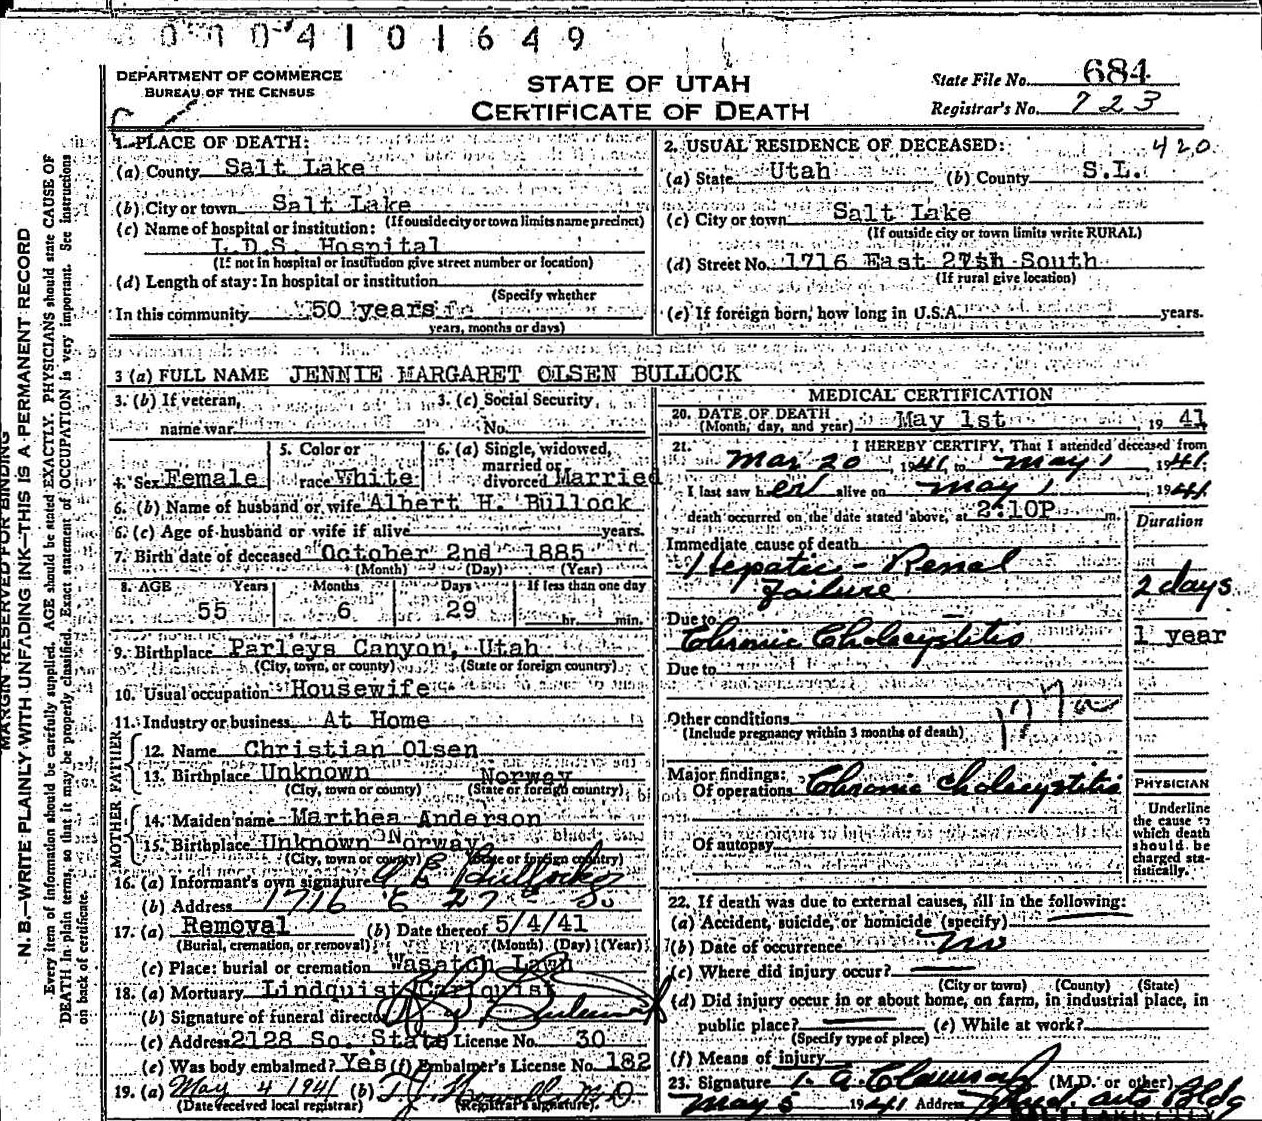 0004101649
DEPARTMENT OF COMMERCE
BUREAU OF THE CENSUS
STATE OF UTAH
CERTIFICATE OF DEATH
State File No. 684
Registrar's No. 723
MARGIN RESERVED FOR BINDING
N. B.—WRITE PLAINLY WITH UNFADING INK—THIS IS A PERMANENT RECORD
Every item of information should be carefully supplied. AGE should be stated EXACTLY. PHYSICIANS should state CAUSE OF
DEATH in plain terms, so that it may be properly classified. Exact statement of OCCUPATION is very important. See instructions
on back of certificate.
1. PLACE OF DEATH:
(a) County Salt Lake
(b) City or town Salt Lake
(If outside city or town limits name precinct)
(c) Name of hospital or institution:
L.D.S. Hospital
(If not in hospital or institution give street number or location)
(d) Length of stay: In hospital or institution
(Specify whether
In this community 50 years
years, months or days)
2. USUAL RESIDENCE OF DECEASED: 420
(a) State Utah (b) County S.L.
(c) City or town Salt Lake
(If outside city or town limits write RURAL)
(d) Street No. 1716 East 27th South
(If rural give location)
(e) If foreign born, how long in U.S.A. years.
3 (a) FULL NAME JENNIE MARGARET OLSEN BULLOCK
3. (b) If veteran, name war
3. (c) Social Security, No.
4. Sex Female
5. Color or race White
6. (a) Single, widowed, married or divorced Married
6. (b) Name of husband or wife Albert H. Bullock
6. (c) Age of husband or wife if alive years.
7. Birth date of deceased October 2nd 1885
(Month) (Day) (Year)
8. AGE Years Months Days If less than one day
55 6 29 hr. min.
9. Birthplace Parleys Canyon, Utah
(City, town, or county) (State or foreign country)
10. Usual occupation Housewife
11. Industry or business At Home
FATHER
12. Name Christian Olsen
13. Birthplace Unknown Norway
(City, town or county) (State or foreign country)
MOTHER
14. Maiden name Marthea Anderson
15. Birthplace Unknown Norway
(City, town or county) (State or foreign country)
16. (a) Informant's own signature Bullock
(b) Address 1716 E 27th So
17. (a) Removal (b) Date thereof 5/4/41
(Burial, cremation, or removal) (Month) (Day) (Year)
(c) Place: burial or cremation Wasatch Lawn
18. (a) Mortuary Lindquist Carlquist
(b) Signature of funeral director
(c) Address 2128 So. State License No. 30
(e) Was body embalmed? Yes (f) Embalmer's License No. 182
19. (a) May 4 1941 (b) T.J. Howells M.D
(Date received local registrar) (Registrar's signature)
MEDICAL CERTIFICATION
20. DATE OF DEATH
(Month, day, and year) May 1st, 1941
21. I HEREBY CERTIFY, That I attended deceased from
Mar 20 1941 to May 1 1941;
I last saw her alive on May 1, 1941
death occurred on the date stated above, at 2:10P m.
Duration
Immediate cause of death
Hepatic-Renal
Failure 2 days
Due to
Chronic Cholecystitis 1 year
Due to
Other conditions
(Include pregnancy within 3 months of death)
Major findings:
Of operations Chronic Cholecystitis
Of autopsy
PHYSICIAN
Underline
the cause to
which death
should be
charged sta-
tistically.
22. If death was due to external causes, fill in the following:
(a) Accident, suicide, or homicide (specify)
(b) Date of occurrence no
(c) Where did injury occur?
(City or town) (County) (State)
(d) Did injury occur in or about home, on farm, in industrial place, in
public place? (e) While at work?
(Specify type of place)
(f) Means of injury
23. Signature (M.D. or other)
May 5 1941 Address Med. Arts Bldg